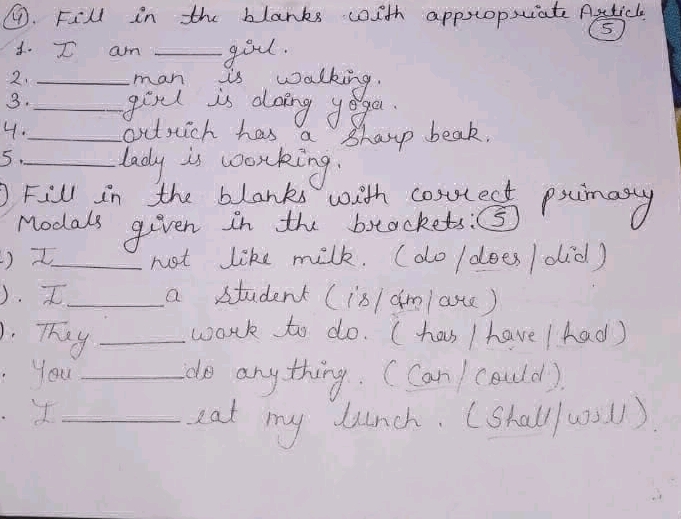 (4). Fill in the blanks with appropriate Article (5)
1. I am ______ girl.
2. ______ man is walking.
3. ______ girl is doing yoga.
4. ______ ortrich has a sharp beak.
5. ______ lady is working.
) Fill in the blanks with correct primary
Modals given in the brackets: (5)
) I ______ not like milk. (do/does/did)
). I ______ a student (is/am/are)
). They ______ work to do. (has/have/had)
. You ______ do anything. (Can/Could).
. I ______ eat my lunch. (Shall/will).